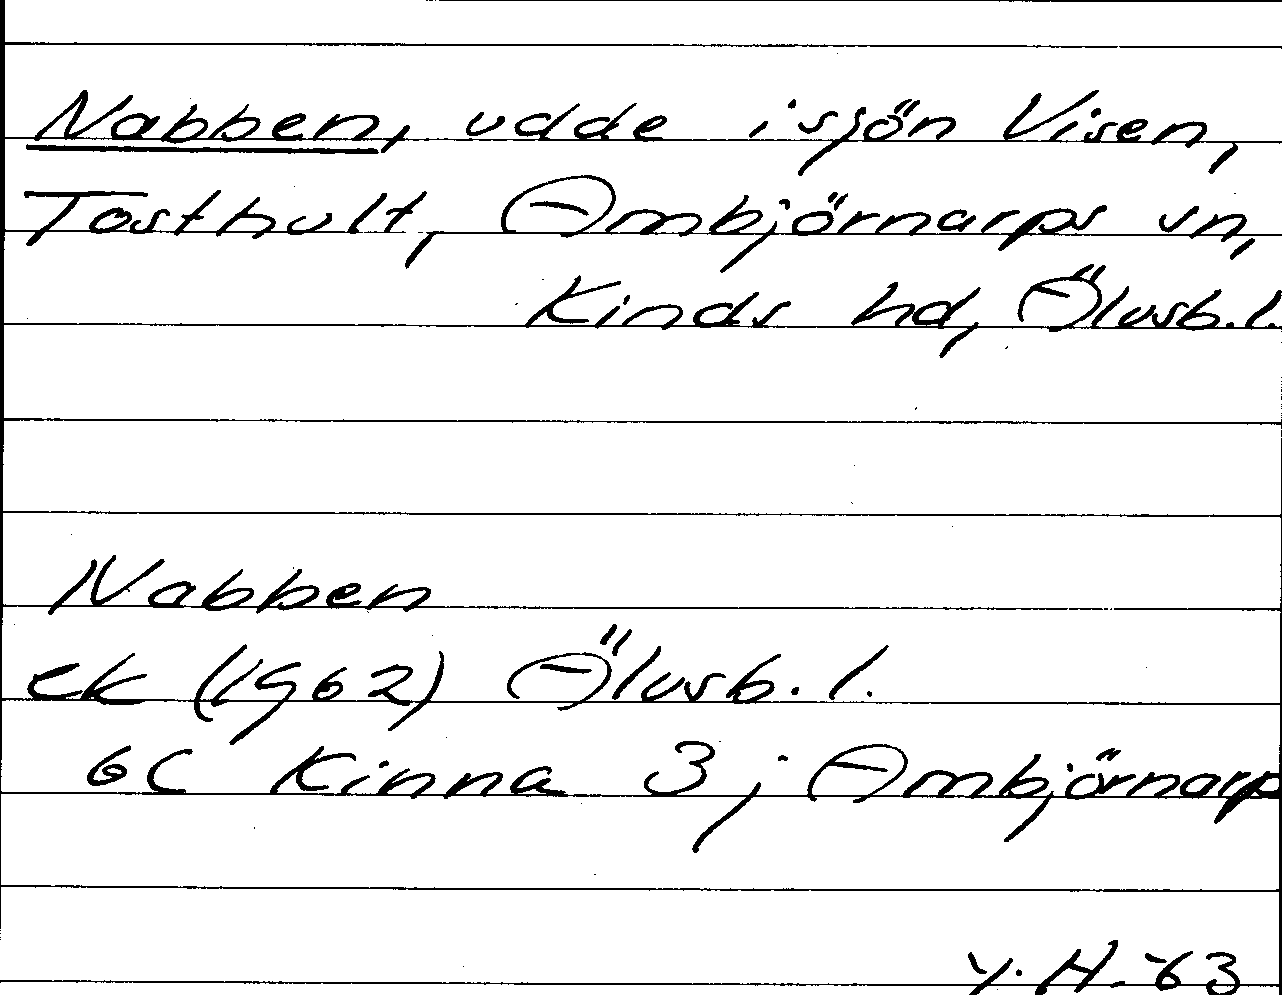 Nabben, udde i sjön Visen,
Tosthult, Ambjörnarps sn,
Kinds hd, Älvsb.l.
Nabben
ek (1962) Älvsb.l.
6C Kinna 3 j Ambjörnarp
Y.H.-63